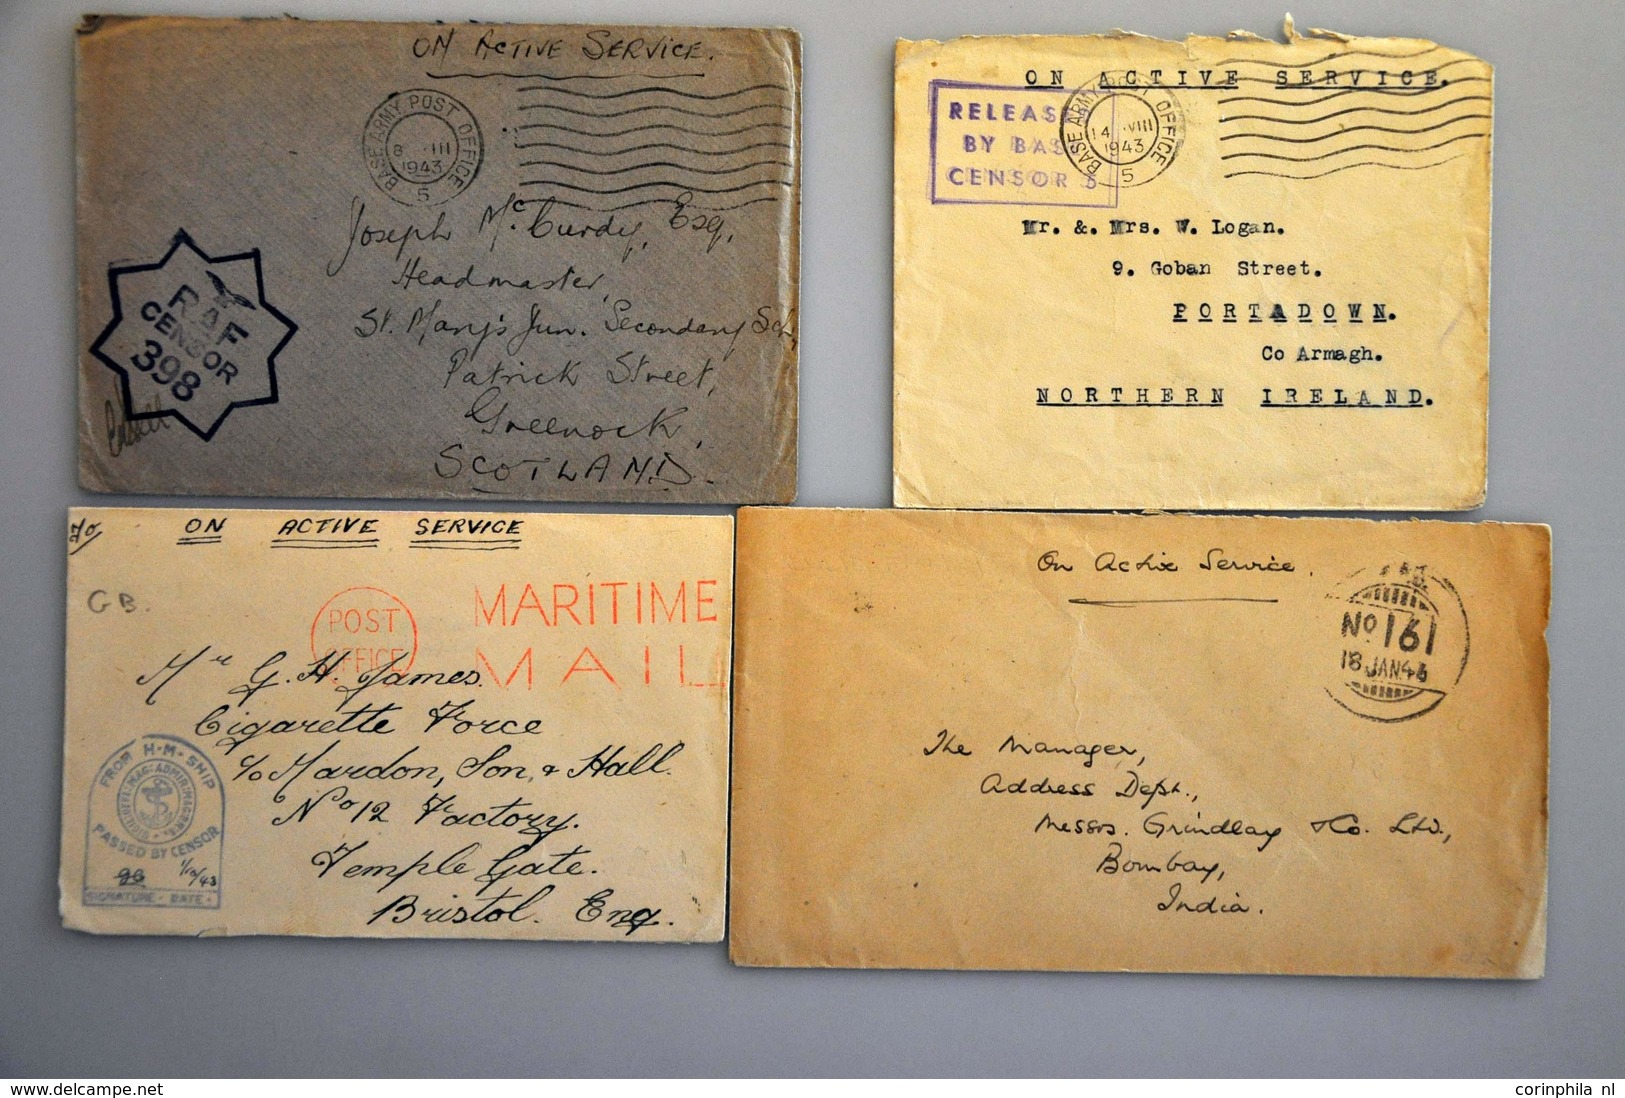 ON ACTIVE SERVICE.
BASE ARMY POST OFFICE
8 III
1943
5
RAF
CENSOR
398
Joseph McCurdy, Esq,
Headmaster,
St. Mary's Jun. Secondary Sch,
Patrick Street,
Greenock,
SCOTLAND.
ON ACTIVE SERVICE.
RELEASED
BY BASE
CENSOR 5
BASE ARMY POST OFFICE
14 VIII
1943
5
Mr. &. Mrs. W. Logan.
9. Goban Street.
PORTADOWN.
Co Armagh.
NORTHERN IRELAND.
ON ACTIVE SERVICE
GB.
POST
OFFICE
MARITIME
MAIL
Mr G. H. James.
Cigarette Force
c/o Mardon, Son, & Hall.
No 12 Factory.
Temple Gate.
Bristol. Eng.
FROM H·M·SHIP
PASSED BY CENSOR
1/10/43
SIGNATURE - DATE -
On Active Service.
No 161
18 JAN 43
The Manager,
Address Dept.,
Messrs. Grindlay & Co. Ltd.,
Bombay,
India.
www.delcampe.net
corinphila nl